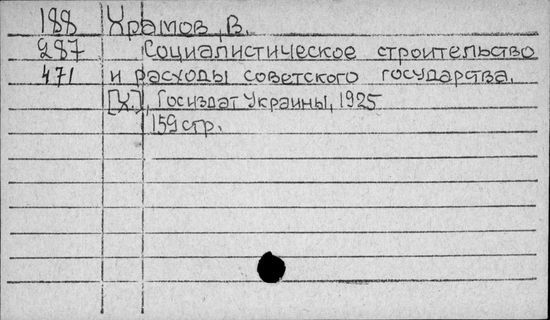 188 Храмов, В.
287 Социалистическое строительство
471 и расходы советского государства.
[Х.], Госиздат Украины, 1925
159 стр.